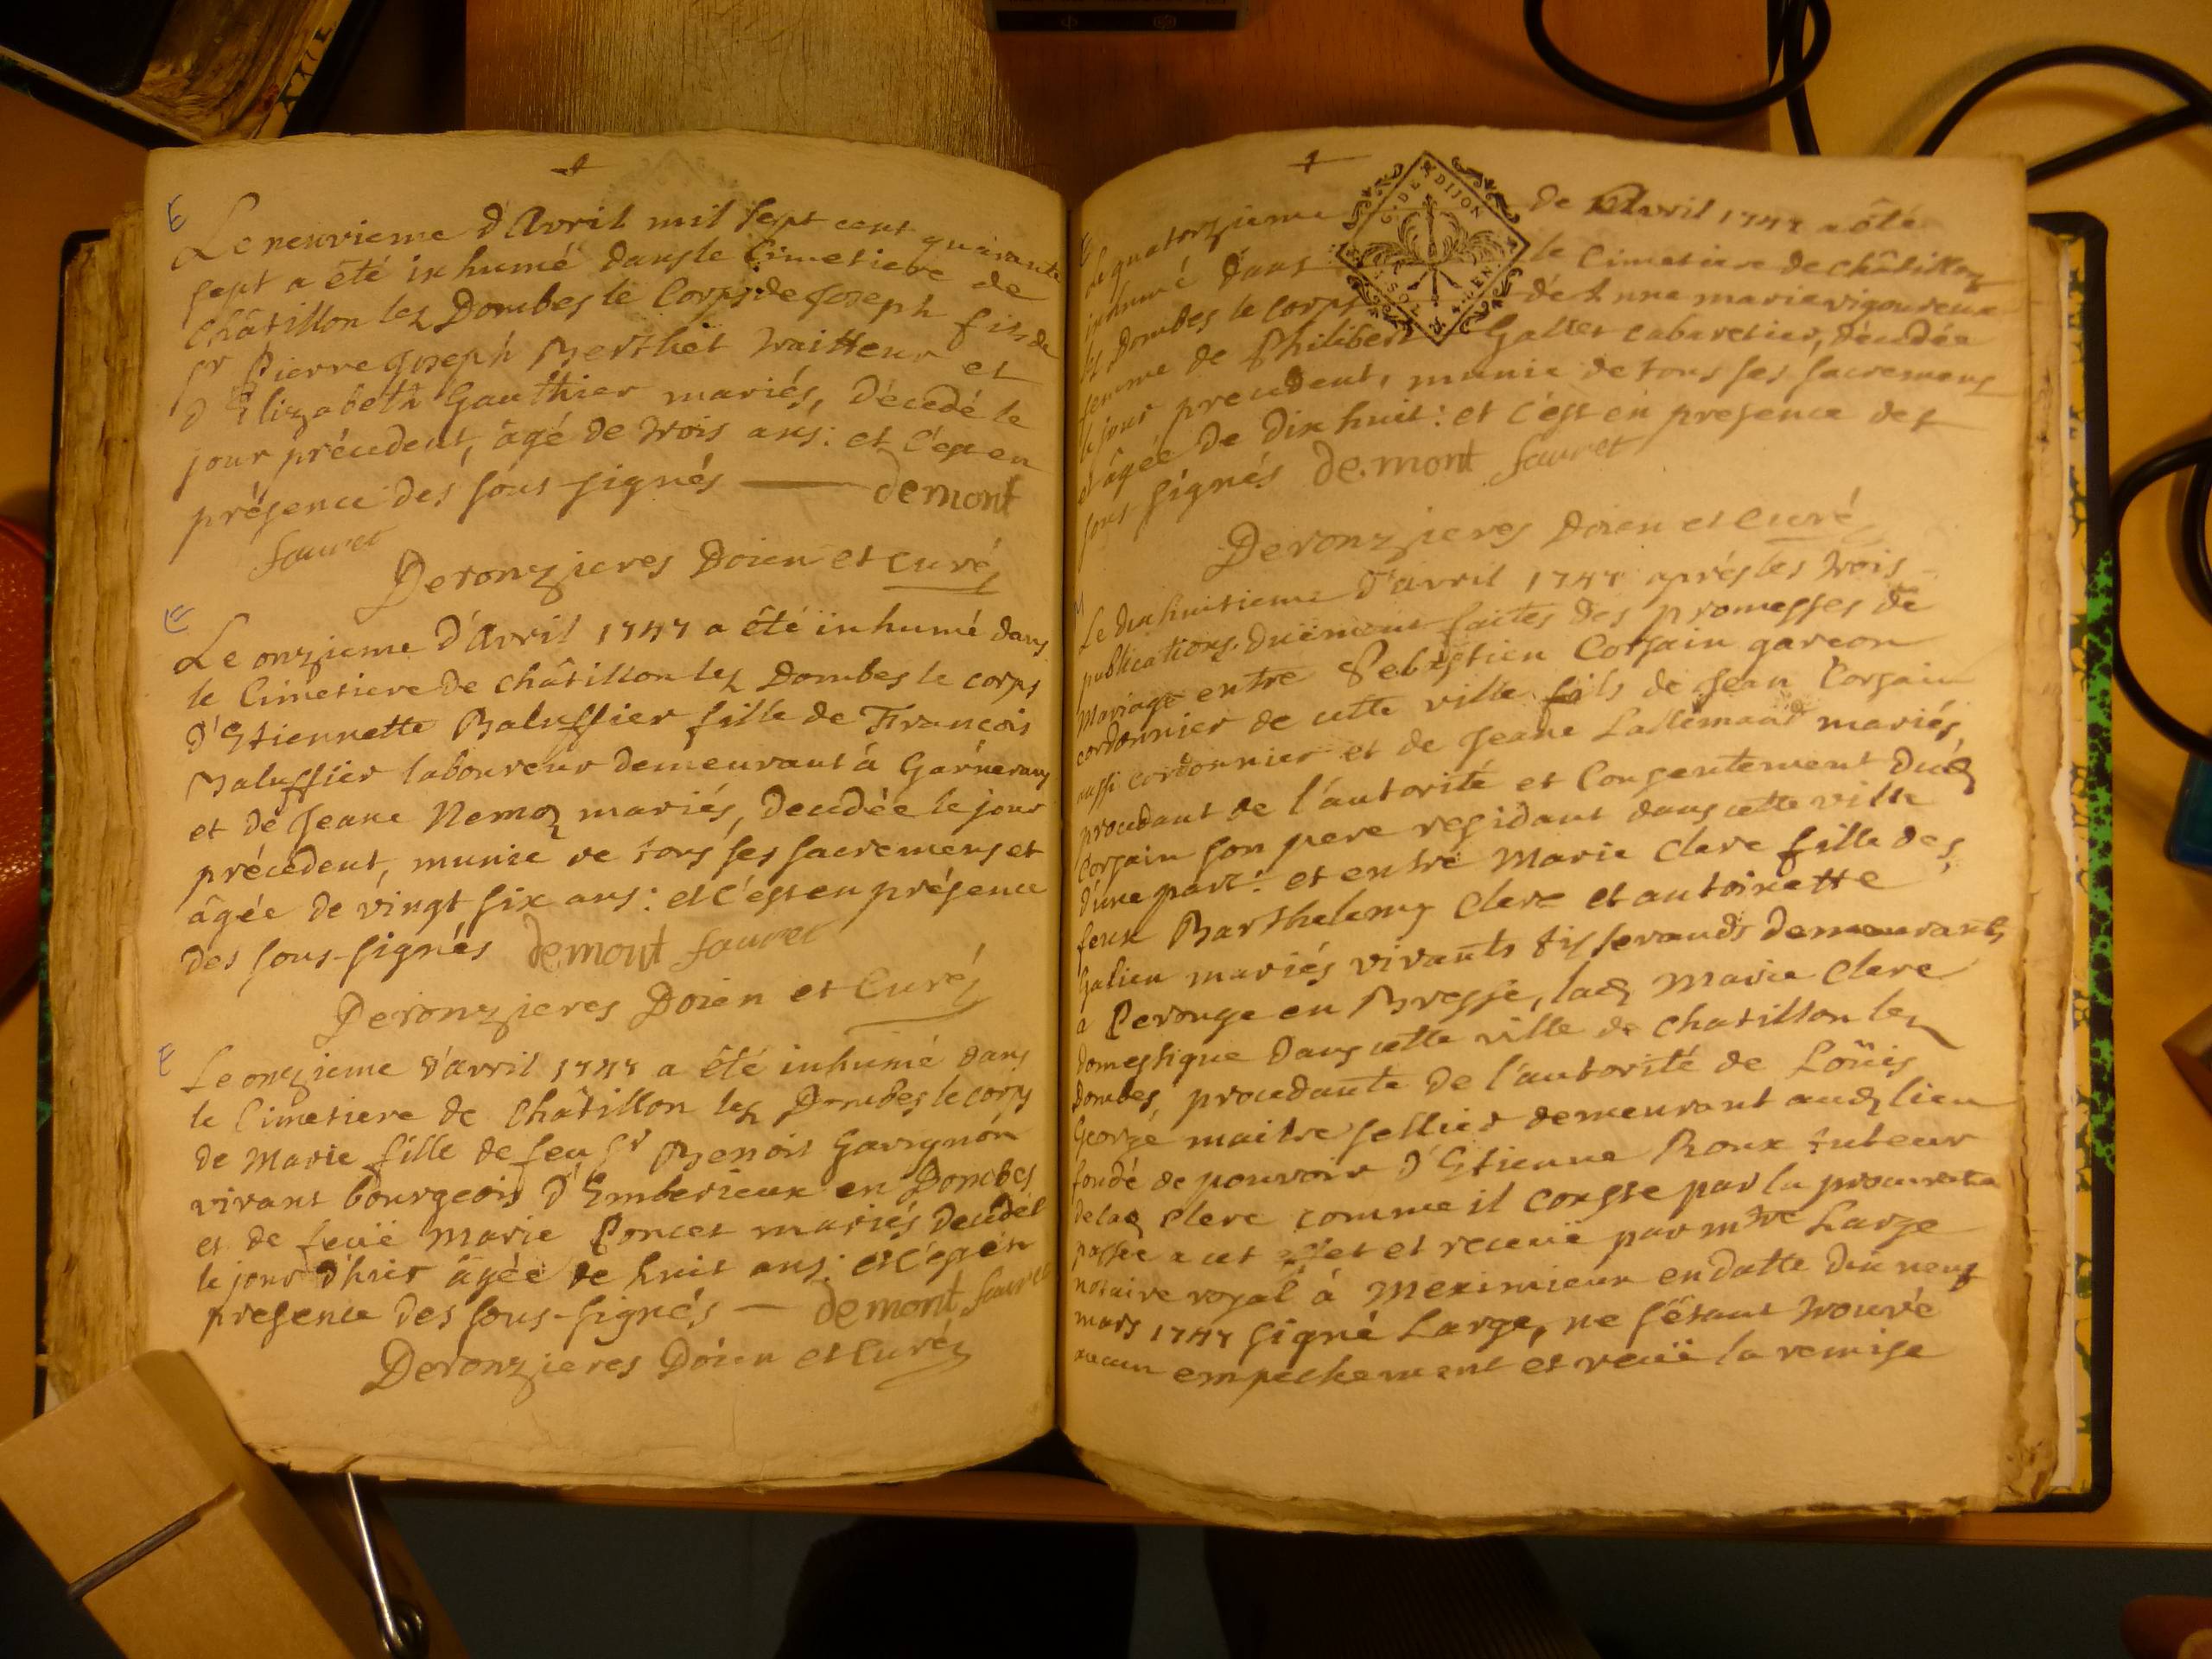 E
Le neuvieme d'Avril mil sept cent quarante
sept a êté inhumé dans le Cimetiere de
châtillon lez Dombes le Corps de Joseph fils de
Sr Pierre Joseph Berthet traitteur et
d'Elizabeth Gauthier mariés, décédé le
jour précedent, âgé de trois ans : et c'est en
présence des sous-signés — demont
fauret
Deronzieres Doien et Curé
E
Le onzieme d'Avril 1747 a êté inhumé dans
le Cimetiere de châtillon lez Dombes le corps
d'Etiennette Baluffier fille de François
Baluffier laboureur demeurant à Garnerans
et de Jeane Nemoz mariés, decédée le jour
précedent, munie de tous ses sacremens et
âgée de vingt six ans : et c'est en présence
des sous-signés demont fauret
Deronzieres Doien et Curé
E
Le onzieme d'avril 1747 a êté inhumé dans
le Cimetiere de Châtillon lez Dombes le corps
de Marie fille de feu Sr Benoit Gavignon
vivant bourgeois d'Emberieux en Dombes
et de feuë Marie Poncet mariés decédée
le jour d'hier âgée de huit ans : et c'est en
presence des sous-signés — demont fauret
Deronzieres Doien et Curé
G. DE DIJON
Le quatorzieme de Avril 1747 a êté
inhumé dans le Cimetiere de châtillon
lez Dombes le corps d'Anne marie vigoureux
femme de Philibert Gallet cabaretier, décedée
le jour precedent, munie de tous ses sacremens
et âgée de dix huit : et c'est en presence des
sous signés demont fauret
Deronzieres Doien et Curé
M
Le dix huitieme d'avril 1747 aprés les trois
publications duëment faites des promesses de
Mariage entre Sebastien Corsain garcon
cordonnier de cette ville fils de Jean Corsain
aussi cordonnier et de Jeane Lallemand mariés,
procedant de l'autorité et Consentement dud
Corsain son pere residant dans cette ville
d'une part : et entre Marie Clerc fille des
feux Barthelemy Clerc et antoinette
Galien mariés vivants tisserands demeurants
a Perouge en Bresse, lad Marie Clerc
domestique dans cette ville de chatillon lez
Dombes procedante de l'autorité de Loüis
George maitre sellier demeurant aud lieu
fondé de pouvoir d'Etienne Roux tuteur
de lad Clerc comme il conste par la procuration
passée a cet effet et receuë par mtre Large
notaire royal à Meximieux en datte dix neuf
mars 1747 signé Large, ne s'étant trouvé
aucun empechement et veuë la remise